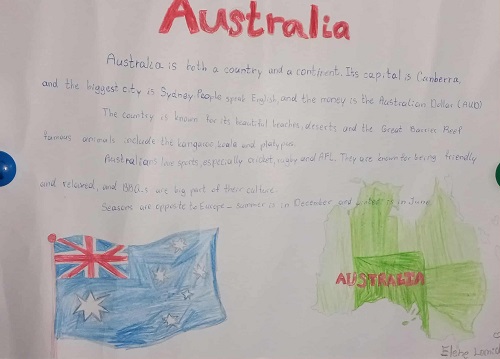 Australia
Australia is both a country and a continent. Its capital is Canberra,
and the biggest city is Sydney. People speak English, and the money is the Australian Dollar (AUD)
The country is known for its beautiful beaches, deserts and the Great Barrier Reef
famous animals include the kangaroo, koala and platypus.
Australians love sports, especially cricket, rugby and AFL. They are known for being friendly
and relaxed, and BBQs are big part of their culture.
Seasons are opposite to Europe – summer is in December and winter is in June.
AUSTRALIA